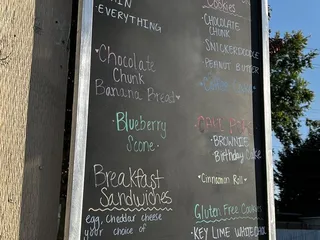 ·EVERYTHING
Chocolate
Chunk
Banana Bread
·Blueberry
Scone·
Breakfast
Sandwiches
egg, cheddar cheese
your choice of
Cookies
·CHOCOLATE
CHUNK
SNICKERDOODLE
PEANUT BUTTER
·BROWNIE
Birthday Cake
·Cinnamon Roll·
Gluten Free Cookies
·KEY LIME WHITE